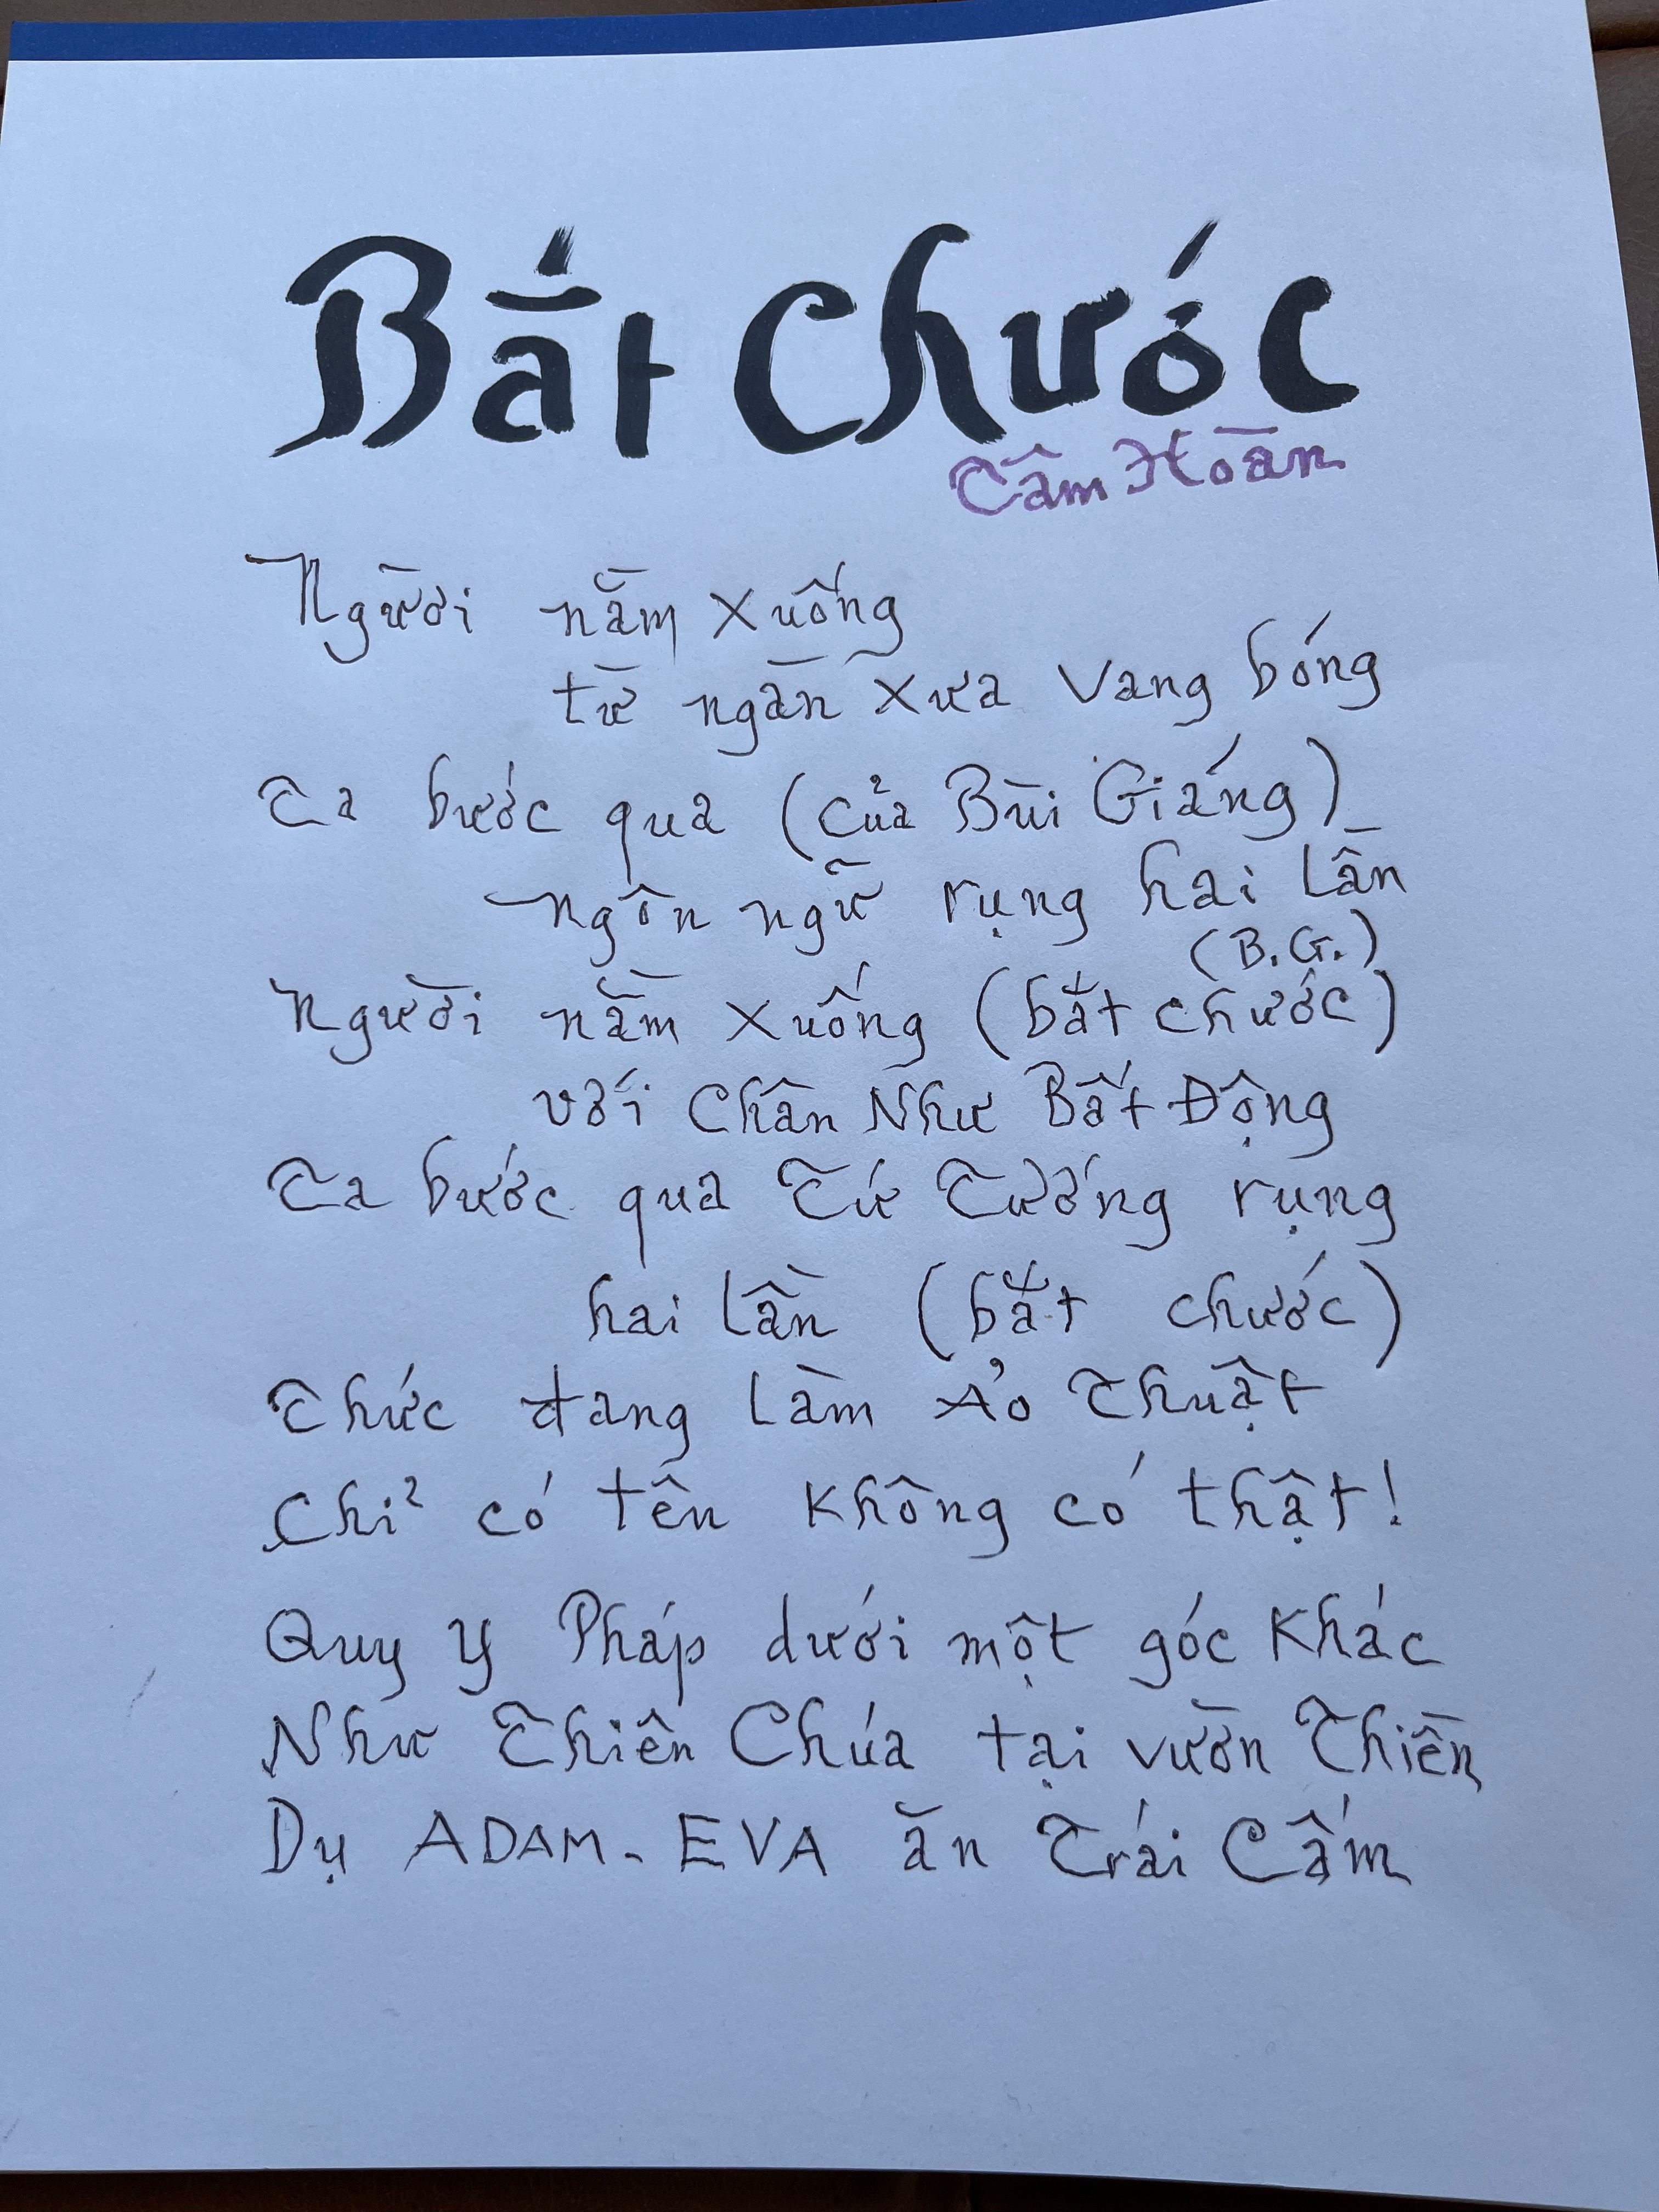 Bắt Chước
Tâm Hoàn
Người nằm xuống
từ ngàn xưa vang bóng
Ta bước qua (của Bùi Giáng)
ngôn ngữ rụng hai lần
(B.G.)
Người nằm xuống (bắt chước)
với Chân Như Bất Động
Ta bước qua Tứ Tướng rụng
hai lần (bắt chước)
Thức đang làm Ảo Thuật
Chỉ có tên không có thật!
Quy y Pháp dưới một góc khác
Như Thiên Chúa tại vườn Thiền
Dụ ADAM-EVA ăn Trái Cấm